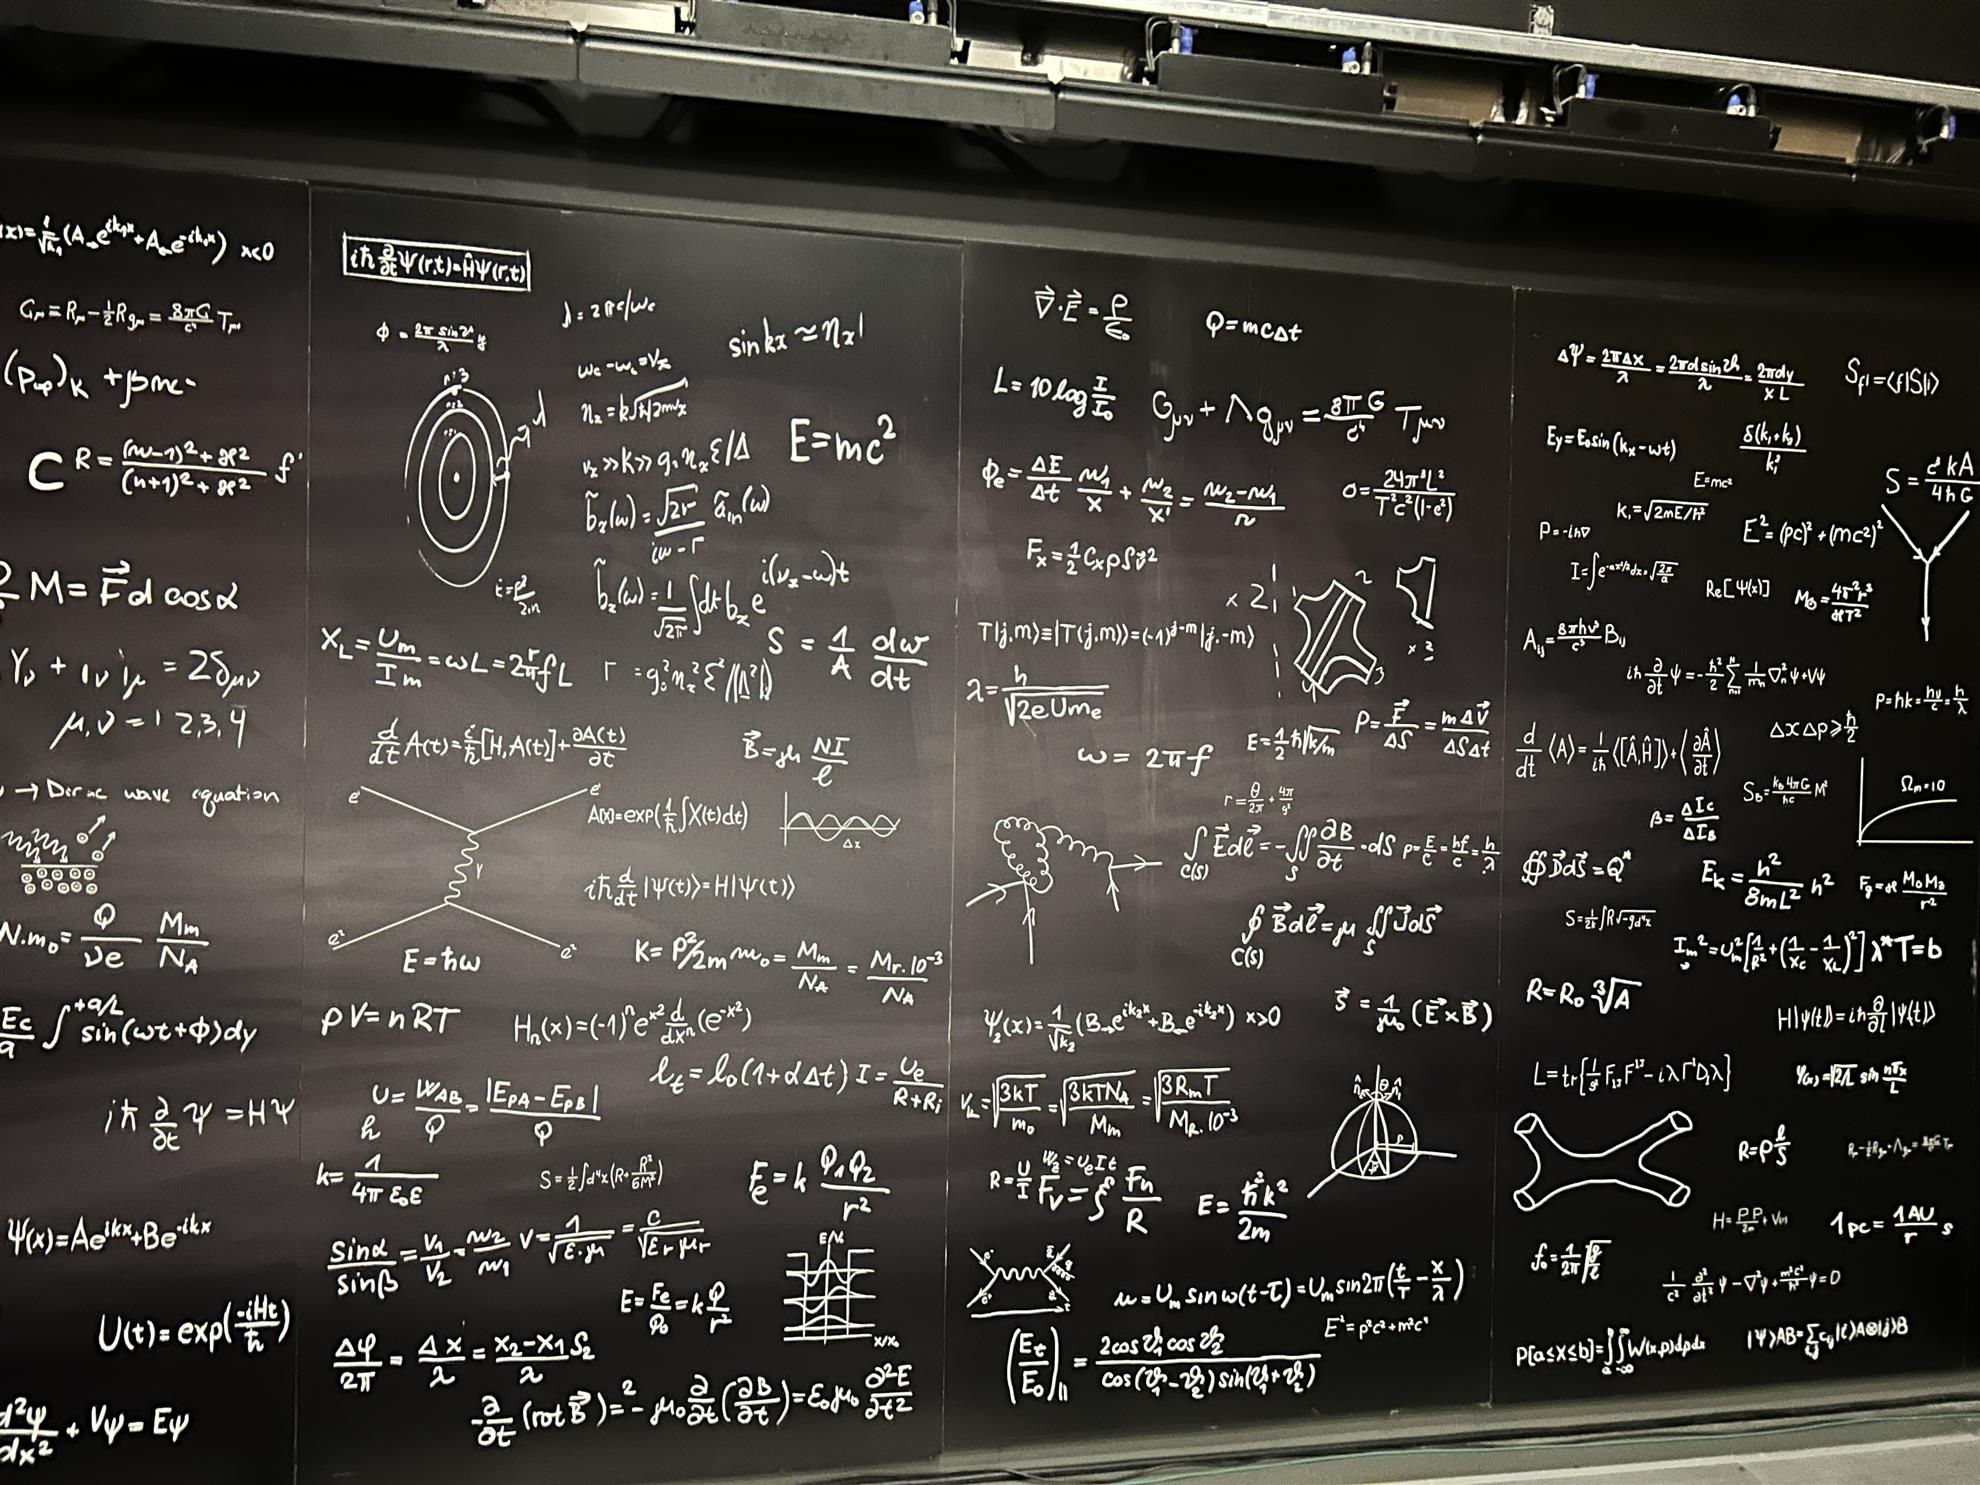 (x)=1/√k₁(A→e^{ik₁x}+A←e^{-ik₁x}) x<0
Gμν=Rμν-½Rgμν=8πG/c⁴ Tμν
+βmc
C R=((n-1)²+æ²)/((n+1)²+æ²) f'
M=F⃗d cosα
= 2δμν
μ,ν = 1 2,3,4
→ Derive wave equation
N.m₀=Q/νe Mm/N_A
Ec/a ∫^{+a/2} sin(ωt+φ)dy
iħ ∂/∂t Ψ=HΨ
Ψ(x)=Ae^{ikx}+Be^{-ikx}
U(t)=exp(-iHt/ħ)
d²ψ/dx² + Vψ=Eψ
iħ ∂/∂t Ψ(r,t)=ĤΨ(r,t)
λ=2πc/ωc
sin kx ≃ ηx|
n=3
n=2
n=1
E=mc²
b̃z(ω)=√2Γ/(iω-Γ) ãin(ω)
b̃z(ω)=1/√2π ∫dt bz e^{i(νz-ω)t}
X_L=Um/Im=ωL=2πfL
S=1/A dw/dt
d/dt A(t)=i/ħ[H,A(t)]+∂A(t)/∂t
B⃗=μ NI/ℓ
e¹
e¹
γ
e²
e²
A(x)=exp(1/ħ∫X(t)dt)
Δx
iħ d/dt |Ψ(t)⟩=H|Ψ(t)⟩
E=ħω
K=P²/2m m₀=Mm/N_A=Mr.10⁻³/N_A
pV=nRT
Hn(x)=(-1)ⁿe^{x²} d/dxⁿ(e^{-x²})
ℓt=ℓ₀(1+αΔt) I=Ue/(R+Ri)
U=W_AB/Q=|E_PA-E_PB|/Q
h
k=1/4πε₀ε
S=½∫d⁴x(R+R²/6M²)
Fe=k Q₁Q₂/r²
sinα/sinβ=v₁/v₂=n₂/n₁ v=1/√ε.μ=c/√εrμr
E=Fe/q₀=k Q/r²
x/x₀
Δφ/2π=Δx/λ=(x₂-x₁)/λ S₂
-∂/∂t(rot B⃗)²=-μ₀∂/∂t(∂B/∂t)=ε₀μ₀ ∂²E/∂t²
∇⃗·E⃗=ρ/ε₀
Q=mcΔt
L=10log I/I₀
Gμν+Λgμν=8πG/c⁴ Tμν
Φe=ΔE/Δt n₁/x+n₂/x'=(n₂-n₁)/r
σ=24π³L²/T²c²(1-e²)
Fx=½CxρSv²
x 2
1
2
3
4
T|j,m⟩≡|T(j,m)⟩=(-1)^{j-m}|j,-m⟩
λ=h/√2eUme
ω=2πf
E=½ħ√k/m
P=F⃗/ΔS=mΔv⃗/ΔSΔt
r=θ/2π+4π/g²
∫C(S) E⃗dℓ⃗=-∬S ∂B/∂t·dS
p=E/c=hf/c=h/λ
∮C(S) B⃗dℓ⃗=μ∬S J⃗dS⃗
Ψ₂(x)=1/√k₂(B→e^{ik₂x}+B←e^{-ik₂x}) x>0
S⃗=1/μ₀(E⃗×B⃗)
Vk=√3kT/m₀=√3kTN_A/Mm=√3RmT/Mr.10⁻³
R=U/I
W₂=UeIt
Fn/R
E=ħ²k²/2m
u=Um sinω(t-τ)=Um sin2π(t/T-x/λ)
E²=p²c²+m²c⁴
(Et/E₀)||=2cosϑ₁cosϑ₂/cos(ϑ₁-ϑ₂)sin(ϑ₁+ϑ₂)
ΔΨ=2πΔx/λ=2πd sinϑ/λ=2πdy/λL
Sfi=⟨f|S|i⟩
Ey=E₀sin(kx-ωt)
δ(k₁+k₂)/k₁²
E=mc²
S=c³kA/4ħG
P=-iħ∇
k₁=√2mE/ħ²
E²=(pc)²+(mc²)²
I=∫e^{-ax²/2}dx=√2π/a
Re[Ψ(x)]
M⊙=4π²r³/æT²
Aij=8πhν³/c³ Bij
iħ ∂/∂t ψ=-ħ²/2 Σ 1/mn ∇n²ψ+Vψ
p=ħk=hν/c=h/λ
ΔxΔp≥ħ/2
d/dt⟨A⟩=1/iħ⟨[Â,Ĥ]⟩+⟨∂Â/∂t⟩
S_B=k_B4πG/ħc M²
Ωm=1.0
β=ΔIc/ΔI_B
∯D⃗dS⃗=Q*
Ek=h²/8mL² n²
Fg=æ M₀M₂/r²
S=1/2κ∫R√-g d⁴x
Im²=Um²[1/R²+(1/Xc-1/X_L)²]
λ*T=b
R=R₀ ∛A
H|ψ(t)⟩=iħ∂/∂t|ψ(t)⟩
φ(x)=√2/L sin nπx/L
R=ρ ℓ/S
1pc=1AU/r s
f₀=1/2π √g/ℓ
1/c² ∂²/∂t² ψ-∇²ψ+m²c²/ħ² ψ=0
P[a≤X≤b]=∫∫W(x,p)dpdx
|Ψ⟩AB=Σcij|i⟩A⊗|j⟩B